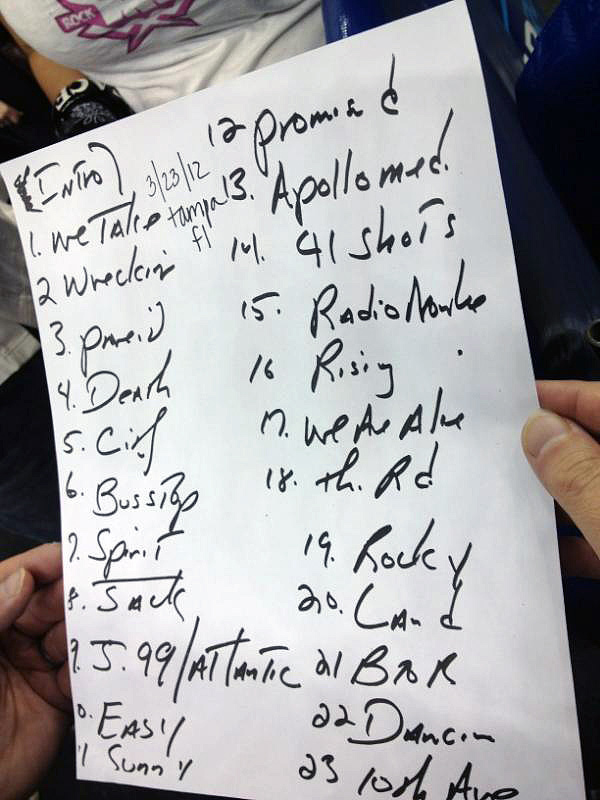 ROCK
(Intro)
3/23/12
tampa
fl
1. We Take
2 Wreckin
3.
4. Death
5.
6. Busstop
7. Spirit
8. Jack
9. J. 99/Atlantic
0. Easy
Sunny
12 promised
13. Apollo med.
14. 41 shots
15. Radio Nowhe
16 Rising
17. We Are Alive
18. th. Rd
19. Rocky
20. Land
21 B2R
22 Dancin
23 10th Ave